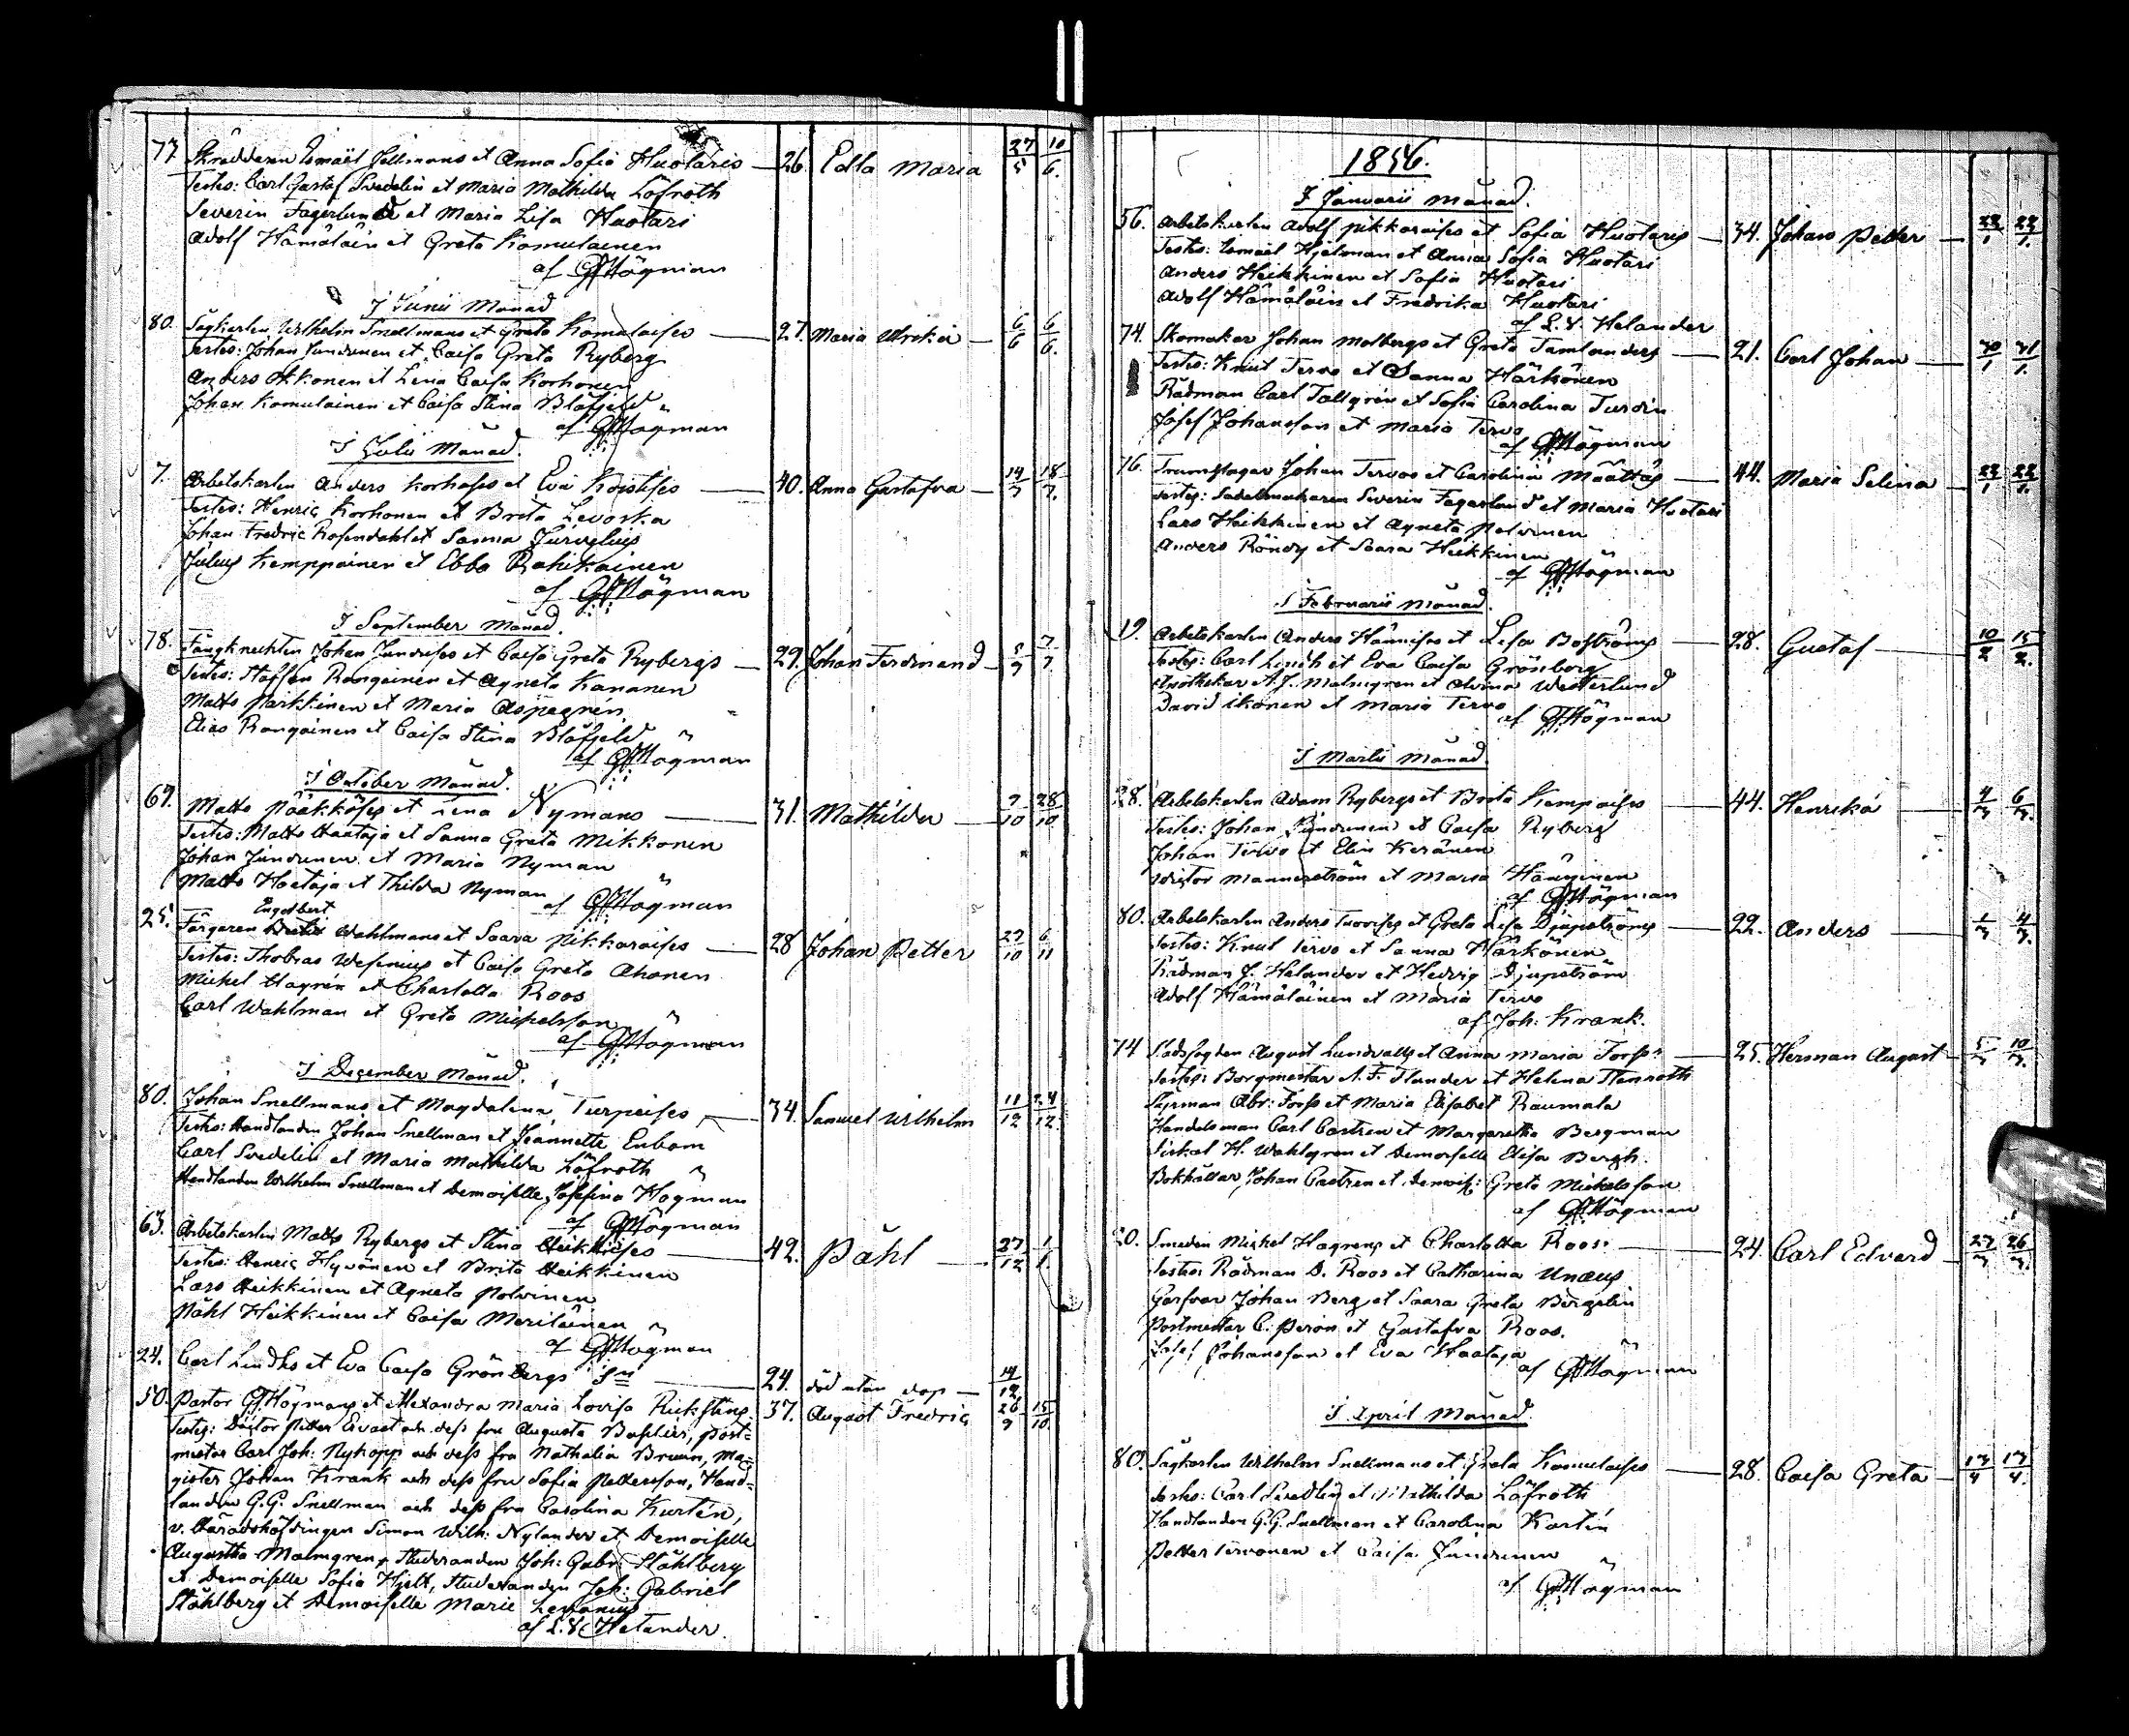 77. Skräddaren Ismaël Hellmans et Anna Sofia Huotaris — 26. Edla Maria 27/5 10/6.
Testes: Carl Gustaf Svedelin et Maria Mathilda Löfroth
Severin Fagerlund et Maria Lisa Huotari
Adolf Hämäläin et Greta Komulainen
af GHHögman
I Junii Månad
80. Sågkarlen Wilhelm Snellmans et Greta Komulaises — 27. Maria Ulrika — 6/6 6/6.
Testes: Johan Jundunen et Caisa Greta Ryberg
Anders Okkonen et Lena Caisa Korhonen
Johan Komulainen et Caisa Stina Blåfjeld
af GHHögman
I Julii Månad.
7. Arbetskarlen Anders Korhoses et Eva Koistises — 40. Anna Gustafva — 14/7 18/7.
Testes: Henric Korhonen et Brita Levoska
Johan Fredric Rosendahl et Sanna Jurvelius
Julius Kemppainen et Ebba Rahikainen
af GHHögman
I September Månad.
78. Fångknechten Johan Jundises et Caisa Greta Rybergs — 29. Johan Ferdinand — 5/9 7/9.
Testes: Staffan Rongainen et Agneta Kananen
Matts Parkkinen et Maria Aspegrén
Elias Rongainen et Caisa Stina Blåfjeld
af GHHögman
I October Månad.
69. Matts Pääkköses et Lena Nymans — 31. Mathilda — 7/10 28/10
Testes: Matts Haataja et Sanna Greta Mikkonen
Johan Jundunen et Maria Nyman
Matts Haataja et Thilda Nyman
af GHHögman
Engelbert
25. Färgaren Wahlmans et Saara Pikkaraises — 28 Johan Petter 27/10 6/11
Testes: Thobias Wesenius et Caisa Greta Ahonen
Michel Hagrén et Charlotta Roos
Carl Wahlman et Greta Michelsson
af GHHögman
I December Månad.
80. Johan Snellmans et Magdalena Turpeises — 34. Samuel Wilhelm 11/12 24/12.
Testes: Handlanden Johan Snellman et Jeannette Enbom
Carl Svedelin et Maria Mathilda Löfroth
Handlanden Wilhelm Snellman et Demoiselle Josefina Högman
af GHHögman
63. Arbetskarlen Matts Rybergs et Stina Heikkises — 42. Påhl — 27/12 1/1.
Testes: Henric Hyvönen et Brita Heikkinen
Lars Heikkinen et Agneta Polvinen
Påhl Heikkinen et Caisa Meriläinen
af GHHögman
24. Carl Lindhs et Eva Caisa Grönbergs — 24. död utan dop — 14/12
50. Pastor GHHögmans et Alexandra Maria Lovisa — 37. August Fredric 26/9 15/10.
Testes: Doctor Petter Ervast och dess fru Augusta Boselius, Post-
mästar Carl Joh: Nykopp och dess fru Nathalia Bruun, Ma-
gister Johan Krank och dess fru Sofia Pettersson, Hand-
landen G.G. Snellman och dess fru Carolina Kurtén,
v. Häradshöfdingen Simon Wilh: Nylander et Demoiselle
Augustha Malmgren, Studeranden Joh: Gabr: Ståhlberg
et Demoiselle Sofia Hjelt, Studeranden Joh: Gabriel
Ståhlberg et Demoiselle Marie
af L.V. Helander.
1856.
I Januarii Månad.
56. Arbetskarlen Adolf Pikkaraises et Sofia Huotaris — 34. Johan Petter — 22/1 23/1.
Testes: Ismaël Hjelman et Anna Sofia Huotari
Anders Heikkinen et Sofia Huotari
Adolf Hämäläin et Fredrika Huotari
af L.V. Helander
74. Skomakar Johan Molbergs et Greta Tamlanders — 21. Carl Johan — 30/1 31/1.
Testes: Knut Tervo et Sanna Härkönen
Rådman Carl Tallgrén et Sofia Carolina Turdin
Josef Johansson et Maria Tervo
af GHHögman
76. Trumslagar Johan Tervos et Carolina Määttäs — 44. Maria Selina — 22/1 22/1.
Testes: Sadelmakaren Severin Fagerlund et Maria Huotari
Lars Heikkinen et Agneta Polvinen
Anders Röndy et Saara Heikkinen
af GHHögman
I Februarii Månad.
19. Arbetskarlen Anders Hännises et Lisa Boströms — 28. Gustaf — 10/2 15/2.
Testes: Carl Lindh et Eva Caisa Grönberg
Apothekar A.J. Malmgren et Alvina Westerlund
David Ikonen et Maria Tervo
af GHHögman
I Martii Månad.
28. Arbetskarlen Adam Rybergs et Brita Kempaises — 44. Henrika — 4/3 6/3.
Testes: Johan Jundunen et Caisa Ryberg
Johan Tervo et Elin Keränen
Victor Mannerström et Maria Hänninen
af GHHögman
80. Arbetskarlen Anders Tuovises et Greta Lisa Djupströms — 22. Anders — 1/3 4/3.
Testes: Knut Tervo et Sanna Härkönen
Rådman J. Helander et Hedvig Djupström
Adolf Hämäläinen et Maria Tervo
af Joh: Krank.
74 Stadsfogden August Lundvalls et Anna Maria Forss: — 25. Herman August — 5/3 10/3.
Testes: Borgmestar A. F. Tlander et Helena Flenroth
Styrman Abr: Forss et Maria Elisabet Raumala
Handelsman Carl Castren et Margaretha Bergman
H. Wahlgren et Demoiselle Elisa Bergh.
Bokhållar Johan Castren et Demois: Greta Michelsson
af GHHögman
20. Smeden Michel Hagrens et Charlotta Roos: — 24. Carl Edvard — 23/3 26/3.
Testes: Rådman D. Roos et Catharina Unæus
Garfvar Johan Berg et Saara Greta Bergelin
Postmestar C. Peron et Gustafva Roos.
Josef Johansson et Eva Haataja
af GHHögman
I April Månad.
80. Sågkarlen Wilhelm Snellmans et Greta Komulaises — 28. Caisa Greta — 13/4 17/4.
Testes: Carl Svedlin et Mathilda Löfroth
Handlanden G.G. Snellman et Carolina Kurtén
Petter Tervonen et Caisa Jundunen
af GHHögman